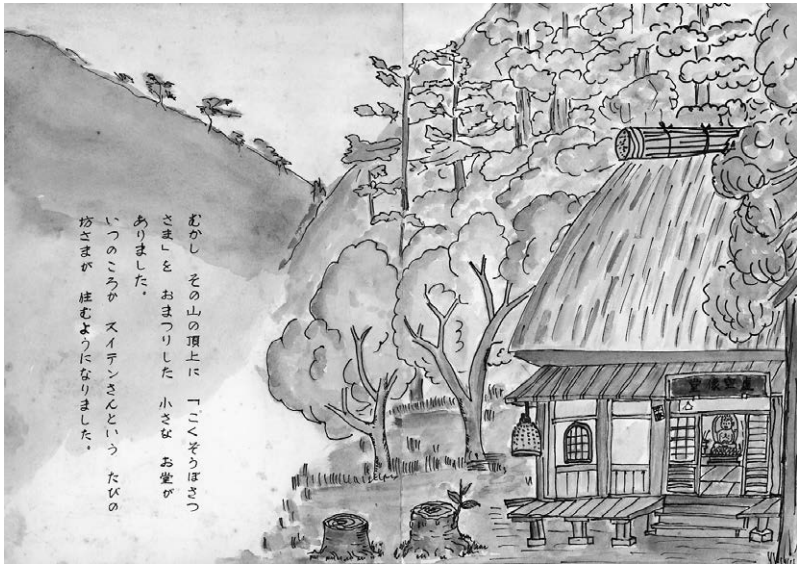 むかし その山の頂上に 「こくそうぼさつ
さま」を おまつりした 小さな お堂が
ありました。
いつのころか スイテンさんという たびの
坊さまが 住むようになりました。